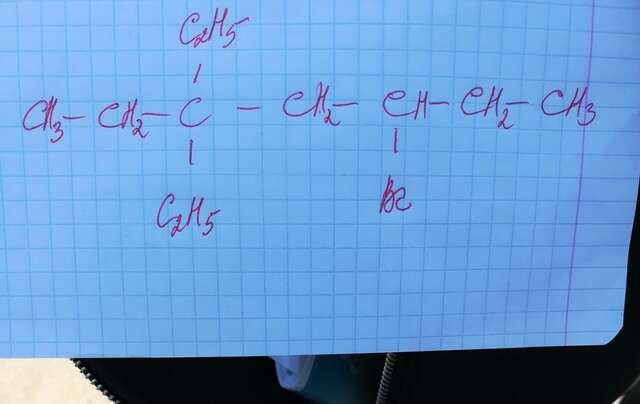 C₂H₅
CH₃ – CH₂ – C – CH₂ – CH – CH₂ – CH₃
C₂H₅ Br